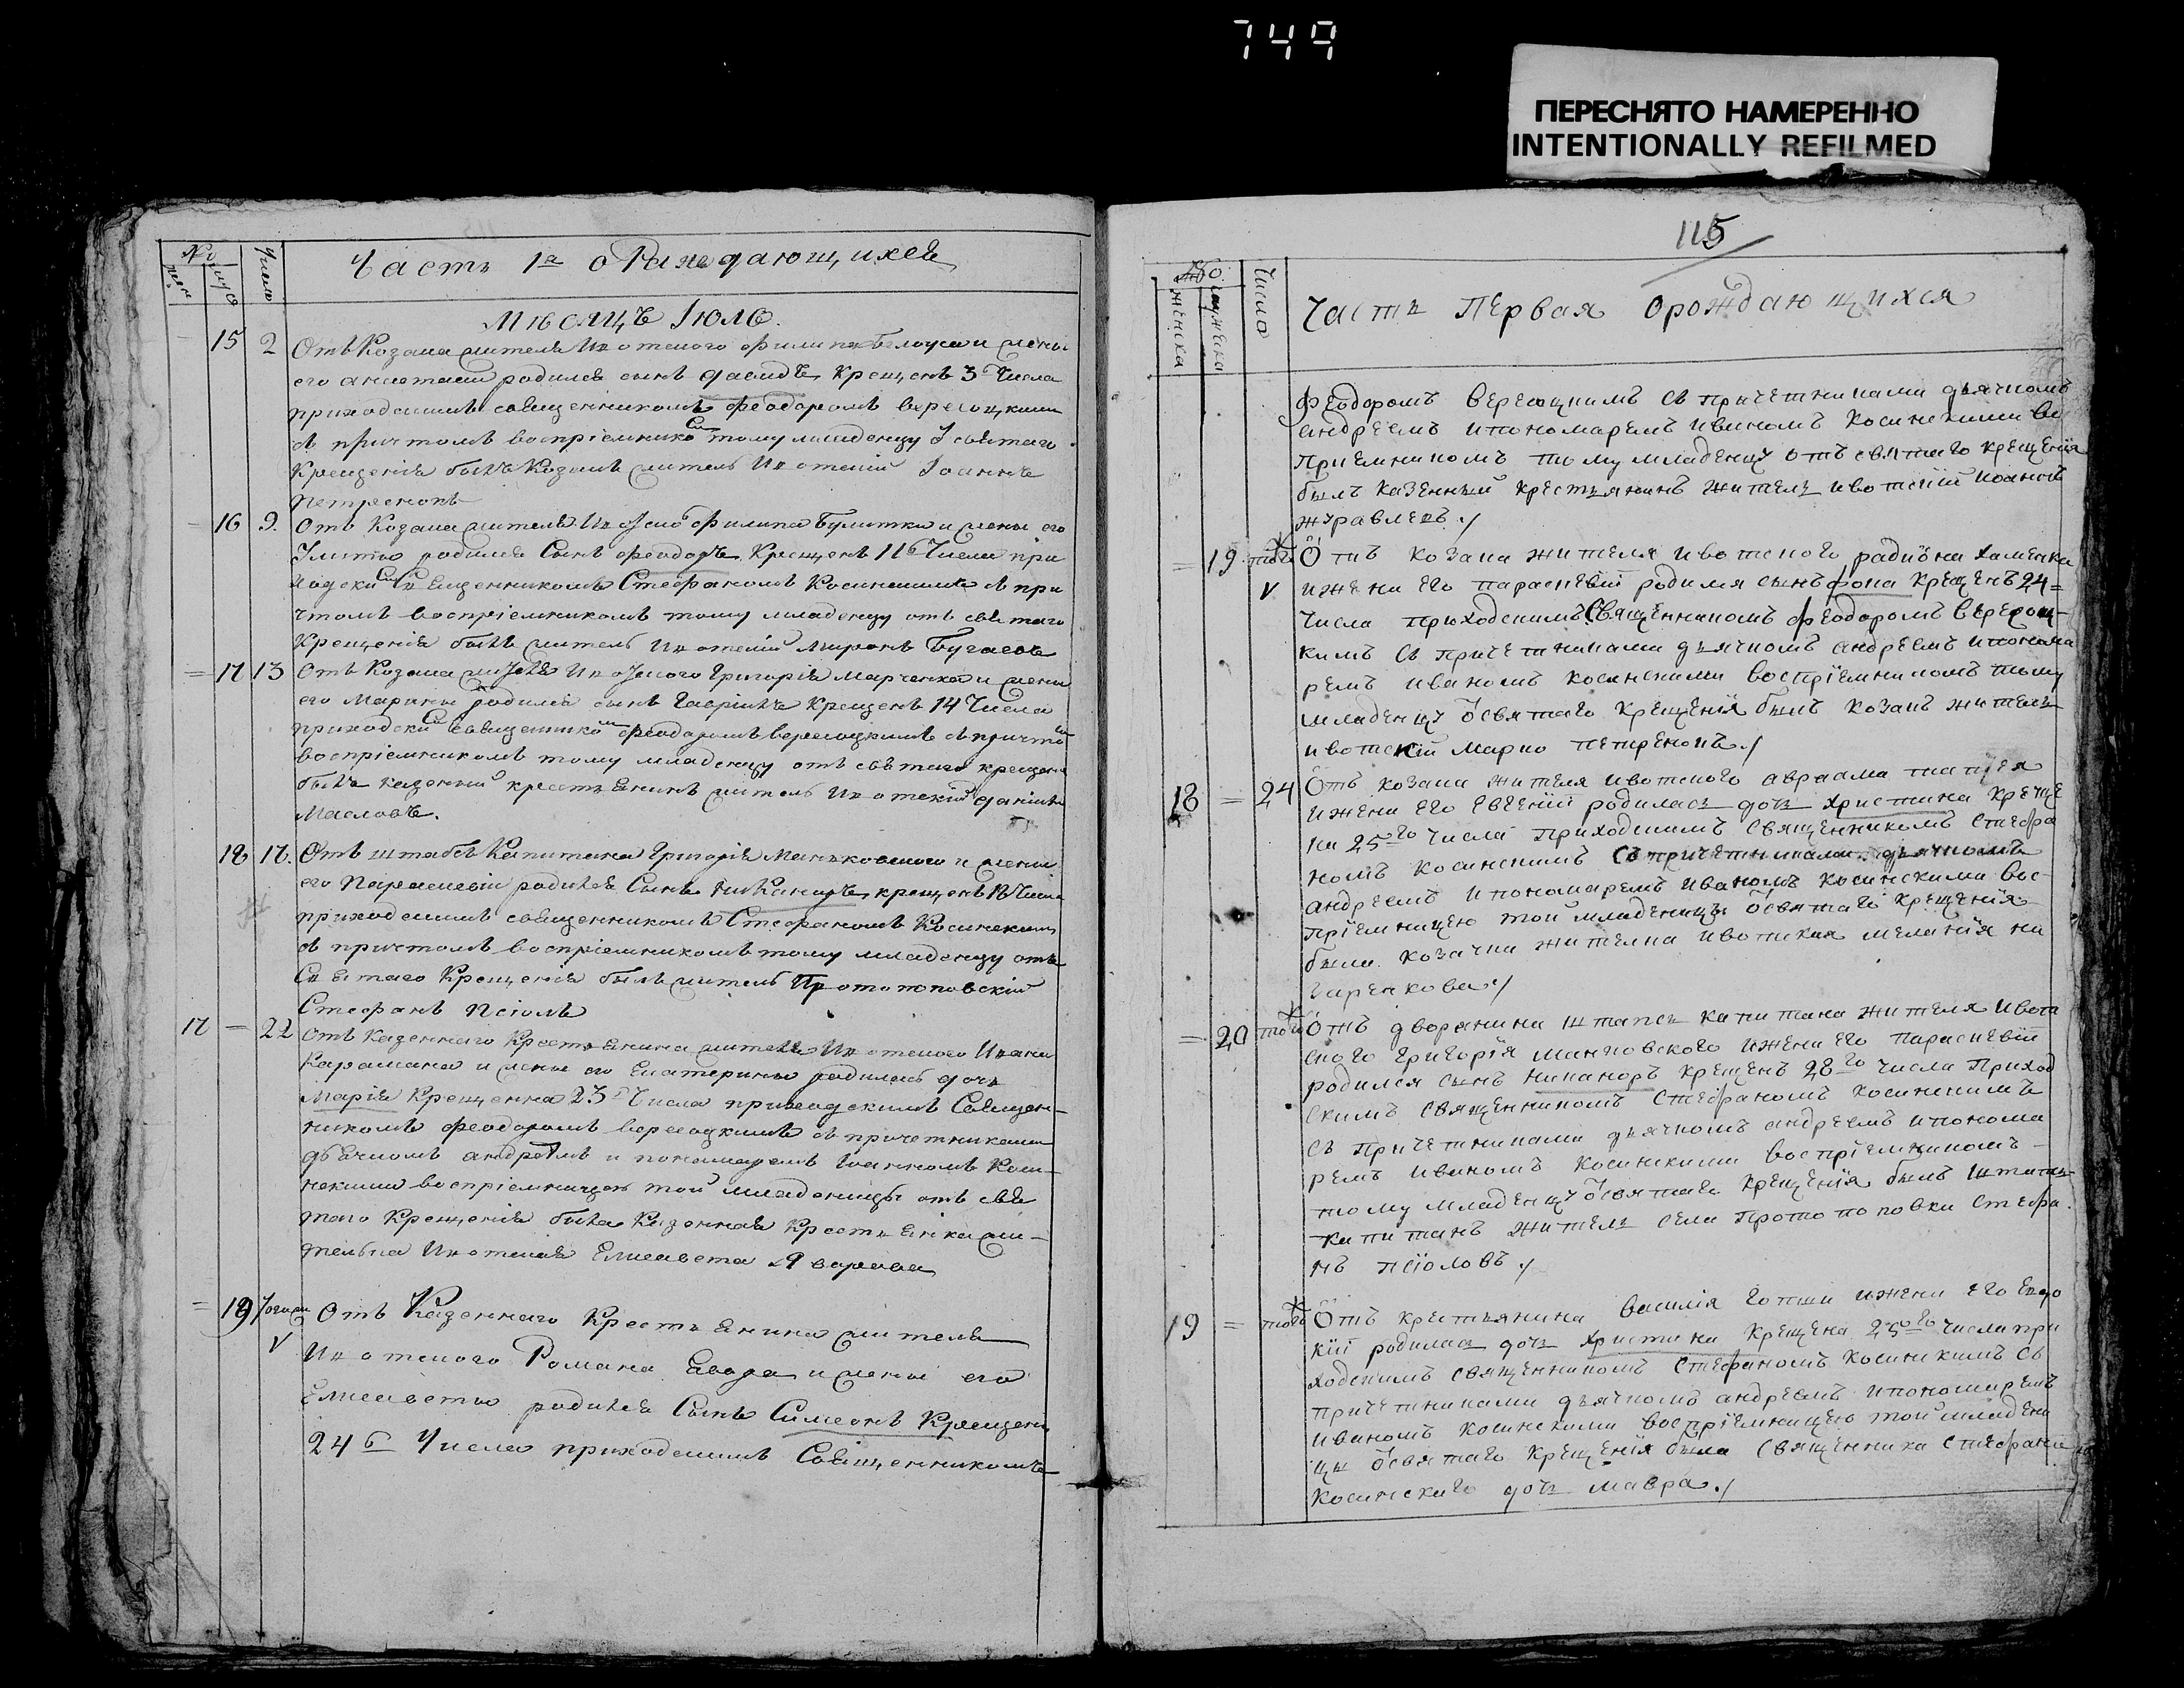 749
ПЕРЕСНЯТО НАМЕРЕННО
INTENTIONALLY REFILMED
№
Число
Часть 1я о Раждающихся
Мѣсяцъ Іюль.
15 2 Отъ Козака жителя Ивотского Филипа Белоуса и жены
его Анастасіи родился сынъ Давидъ Крещенъ 3 Числа
приходскимъ священникомъ Феодоромъ Верегоцкимъ
съ причтомъ воспріемникомъ тому младенцу святаго
Крещенія былъ Козакъ житель Ивотскій Іоаннъ
Петренокъ
16 9. Отъ Козака жителя Филипа Булитки и жены его
родился Сынъ Феодоръ Крещенъ 11 Числа при
ходским Священникомъ Стефаномъ Косинскимъ съ при
чтомъ воспріемникомъ тому младенцу отъ святаго
Крещенія былъ житель Ивотскій Миронъ Бугаевъ
= 17 13 Отъ Козака жителя Ивотского Григорія Марченка и жены
его Марины родился сынъ Гавріилъ Крещенъ 14 Числа
приходским священником Феодоромъ Верегоцкимъ съ причтом
воспріемникомъ тому младенцу отъ святаго крещения
былъ казенный крестьянинъ житель Ивотский Даніилъ
Масловъ.
18 18. Отъ штабсъ Капитана Григорія Маньковского и жены
его Параскевіи родился Сынъ Никаноръ крещенъ Числа
приходскимъ священникомъ Стефаномъ Косинскимъ
съ причтомъ воспріемникомъ тому младенцу отъ
Святаго Крещенія былъ житель Протопоповскій
Стефанъ Псіолъ
17 = 22 Отъ Казеннаго Крестьянина жителя Ивотского Ивана
Карамана и жены его Екатерины родилась дочь
Марія Крещенна 23 Числа приходскимъ Священ-
никомъ Феодоромъ Верегоцкимъ съ причетниками
дьячкомъ Андреемъ и пономаремъ Іоанномъ Коси-
нскими воспріемницею той младеницы отъ свя
таго Крещенія была Казенная Крестьянка жи-
тельна Ивотская Елисавета
= 19 Тогожъ Отъ Казеннаго Крестьянина жителя
V Ивотского Романа и жены его
Елисаветы родился Сынъ Симеонъ Крещенъ
24 Числа приходскимъ Священникомъ
115
№
женска
мужеска
Число
Часть Первая о рождающихся
Феодоромъ Верегоцкимъ съ причетниками дьячкомъ
андреемъ и пономаремъ иваномъ Косинскими во
приемникомъ тому младенцу отъ святаго крещения
былъ казенный крестьянинъ житель ивотский иоанъ
журавлевъ./
= 19 того Отъ козака жителя ивотского радиона Хаменка
V и жены его параскевии родился сынъ фока крещенъ 24=
числа приходскимъ Священникомъ феодоромъ Верегоц-
кимъ съ причетниками дьячкомъ андреемъ и понома
ремъ иваномъ косинскими восприемникомъ тому
младенцу освятаго крещения былъ козакъ житель
ивотский марко петренокъ./
18 = 24 Отъ козака жителя ивотского авраама
и жены его евгении родилась дочь христина креще
на 25го числа приходскимъ священникомъ стефа
номъ косинскимъ съ причетниками дьячкомъ
андреемъ и пономаремъ иваномъ косинскими вос-
приемницею той младеницы освятаго крещения
была козачка жителка ивотская мелания на
заренкова/
= 20 того Отъ дворянина штапсъ капитана жителя ивот
ского григория манковского и жены его параскевии
родился сынъ никаноръ крещенъ 28го числа приход
скимъ священникомъ стефаномъ косинскимъ
съ причетниками дьячкомъ андреемъ и понома
ремъ иваномъ косинскими восприемникомъ
тому младенцу освятаго крещения былъ штапсъ
капитанъ житель села протопоповки стефа
нъ псиоловъ./
19 = того Отъ крестьянина василия готки и жены его евдо
кии родилась дочь христина крещена 25го числа при
ходскимъ священникомъ стефаномъ косинскимъ съ
причетниками дьячкомъ андреемъ и пономаремъ
иваномъ косинскими восприемницею той младени
цы освятаго крещения была священника стефана
косинскаго дочь мавра./